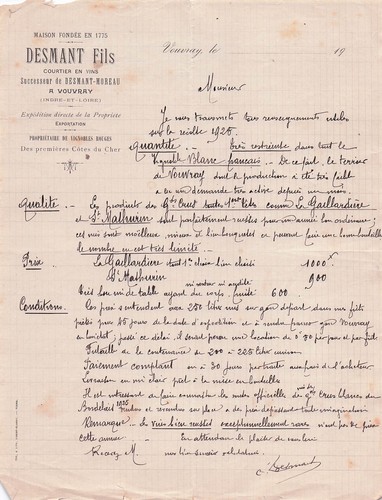 MAISON FONDÉE EN 1775
DESMANT Fils
COURTIER EN VINS
Successeur de DESMANT-MOREAU
A VOUVRAY
(INDRE-ET-LOIRE)
Expédition directe de la Propriété
EXPORTATION
PROPRIÉTAIRE DE VIGNOBLES ROUGES
Des premières Côtes du Cher
Vouvray, le 19
Monsieur
Je vous transmets les renseignements utiles
sur la récolte 1925.
Quantité très restreinte dans tout le
Vignoble Blanc français. De ce fait le terroir
de Vouvray dont la production a été très faible
a eu une demande très active depuis un mois.
Qualité. Les produits des Gds crus toutes 1ères têtes comme La Gaillardière
et St Mathurin sont parfaitement réussis pour une année ordinaire;
ils sont moelleux, mieux et
le nombre en est très limité.
Prix La Gaillardière tout 1er choix bien choisi 1000
St Mathurin 900
Très bon vin de table ayant du corps, fruité 600
Conditions. Ces prix s'entendent aux 250 litres nus sur gare départ dans vos fûts
prêtés pour 45 jours de la date d'expédition et à rendre franco gare Vouvray
passé ce délai il serait perçu une location de 0.30 par jour et par fût
Futaille de la contenance de 200 à 225 litres
Paiement comptant ou à 30 jours par traite aux frais de l'acheteur
Livraison en vin clair prêt à la mise en bouteilles
Il est intéressant de faire connaître les ventes officielles des Gds crus blancs du
Bordelais 1925 vendus et revendus sur place à des prix dépassant toute imagination
Remarque. Les vins bien réussis exceptionnellement rares
cette année. En attendant le plaisir de vous lire
Recevez M mes bien sincères salutations.
C. Desmant